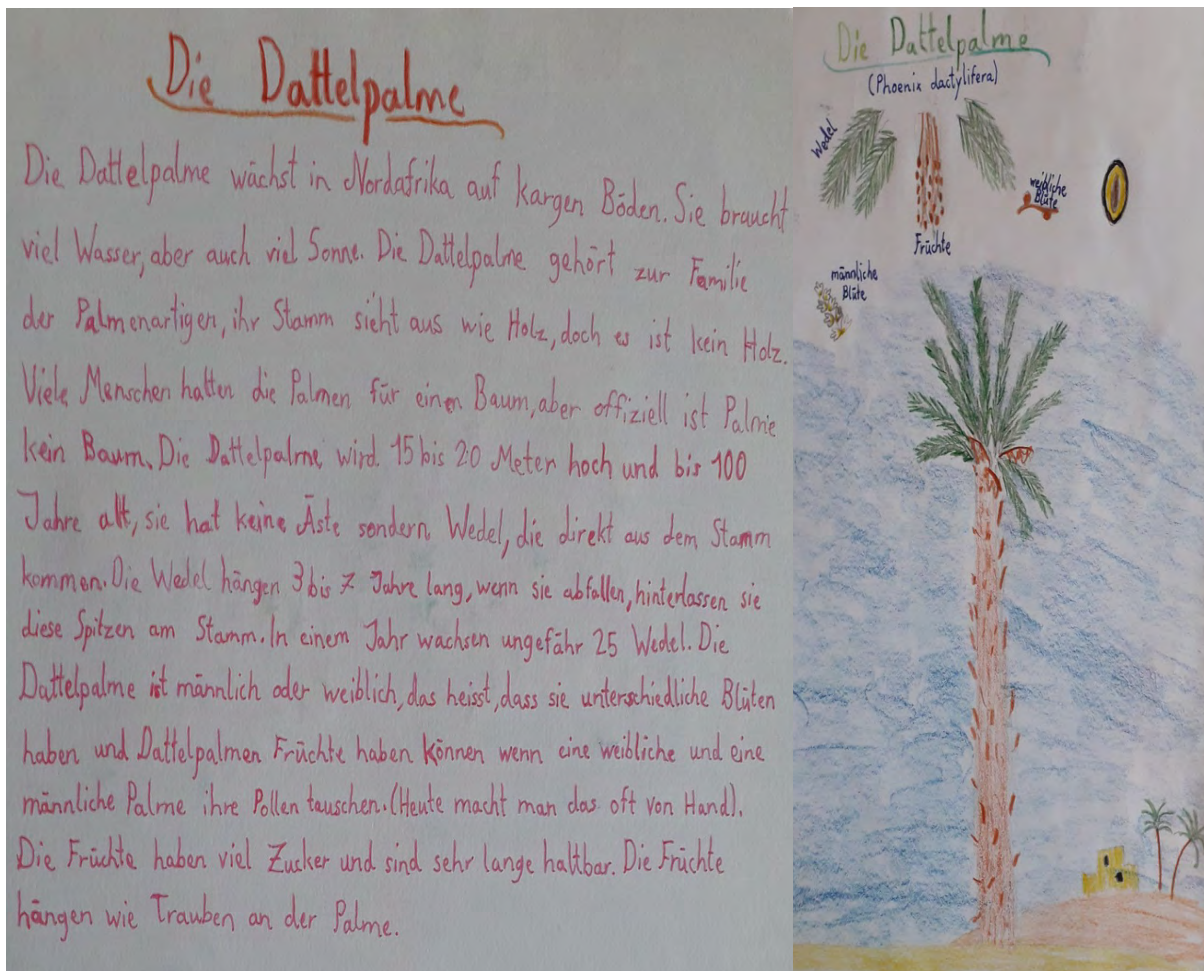 Die Dattelpalme
Die Dattelpalme wächst in Nordafrika auf kargen Böden. Sie braucht
viel Wasser, aber auch viel Sonne. Die Dattelpalme gehört zur Familie
der Palmenartigen, ihr Stamm sieht aus wie Holz, doch es ist kein Holz.
Viele Menschen halten die Palmen für einen Baum, aber offiziell ist Palme
kein Baum. Die Dattelpalme wird 15 bis 20 Meter hoch und bis 100
Jahre alt, sie hat keine Äste sondern Wedel, die direkt aus dem Stamm
kommen. Die Wedel hängen 3 bis 7 Jahre lang, wenn sie abfallen, hinterlassen sie
diese Spitzen am Stamm. In einem Jahr wachsen ungefähr 25 Wedel. Die
Dattelpalme ist männlich oder weiblich, das heisst, dass sie unterschiedliche Blüten
haben und Dattelpalmen Früchte haben können wenn eine weibliche und eine
männliche Palme ihre Pollen tauschen. (Heute macht man das oft von Hand).
Die Früchte haben viel Zucker und sind sehr lange haltbar. Die Früchte
hängen wie Trauben an der Palme.
Die Dattelpalme
(Phoenix dactylifera)
Wedel
weibliche
Blüte
Früchte
männliche
Blüte